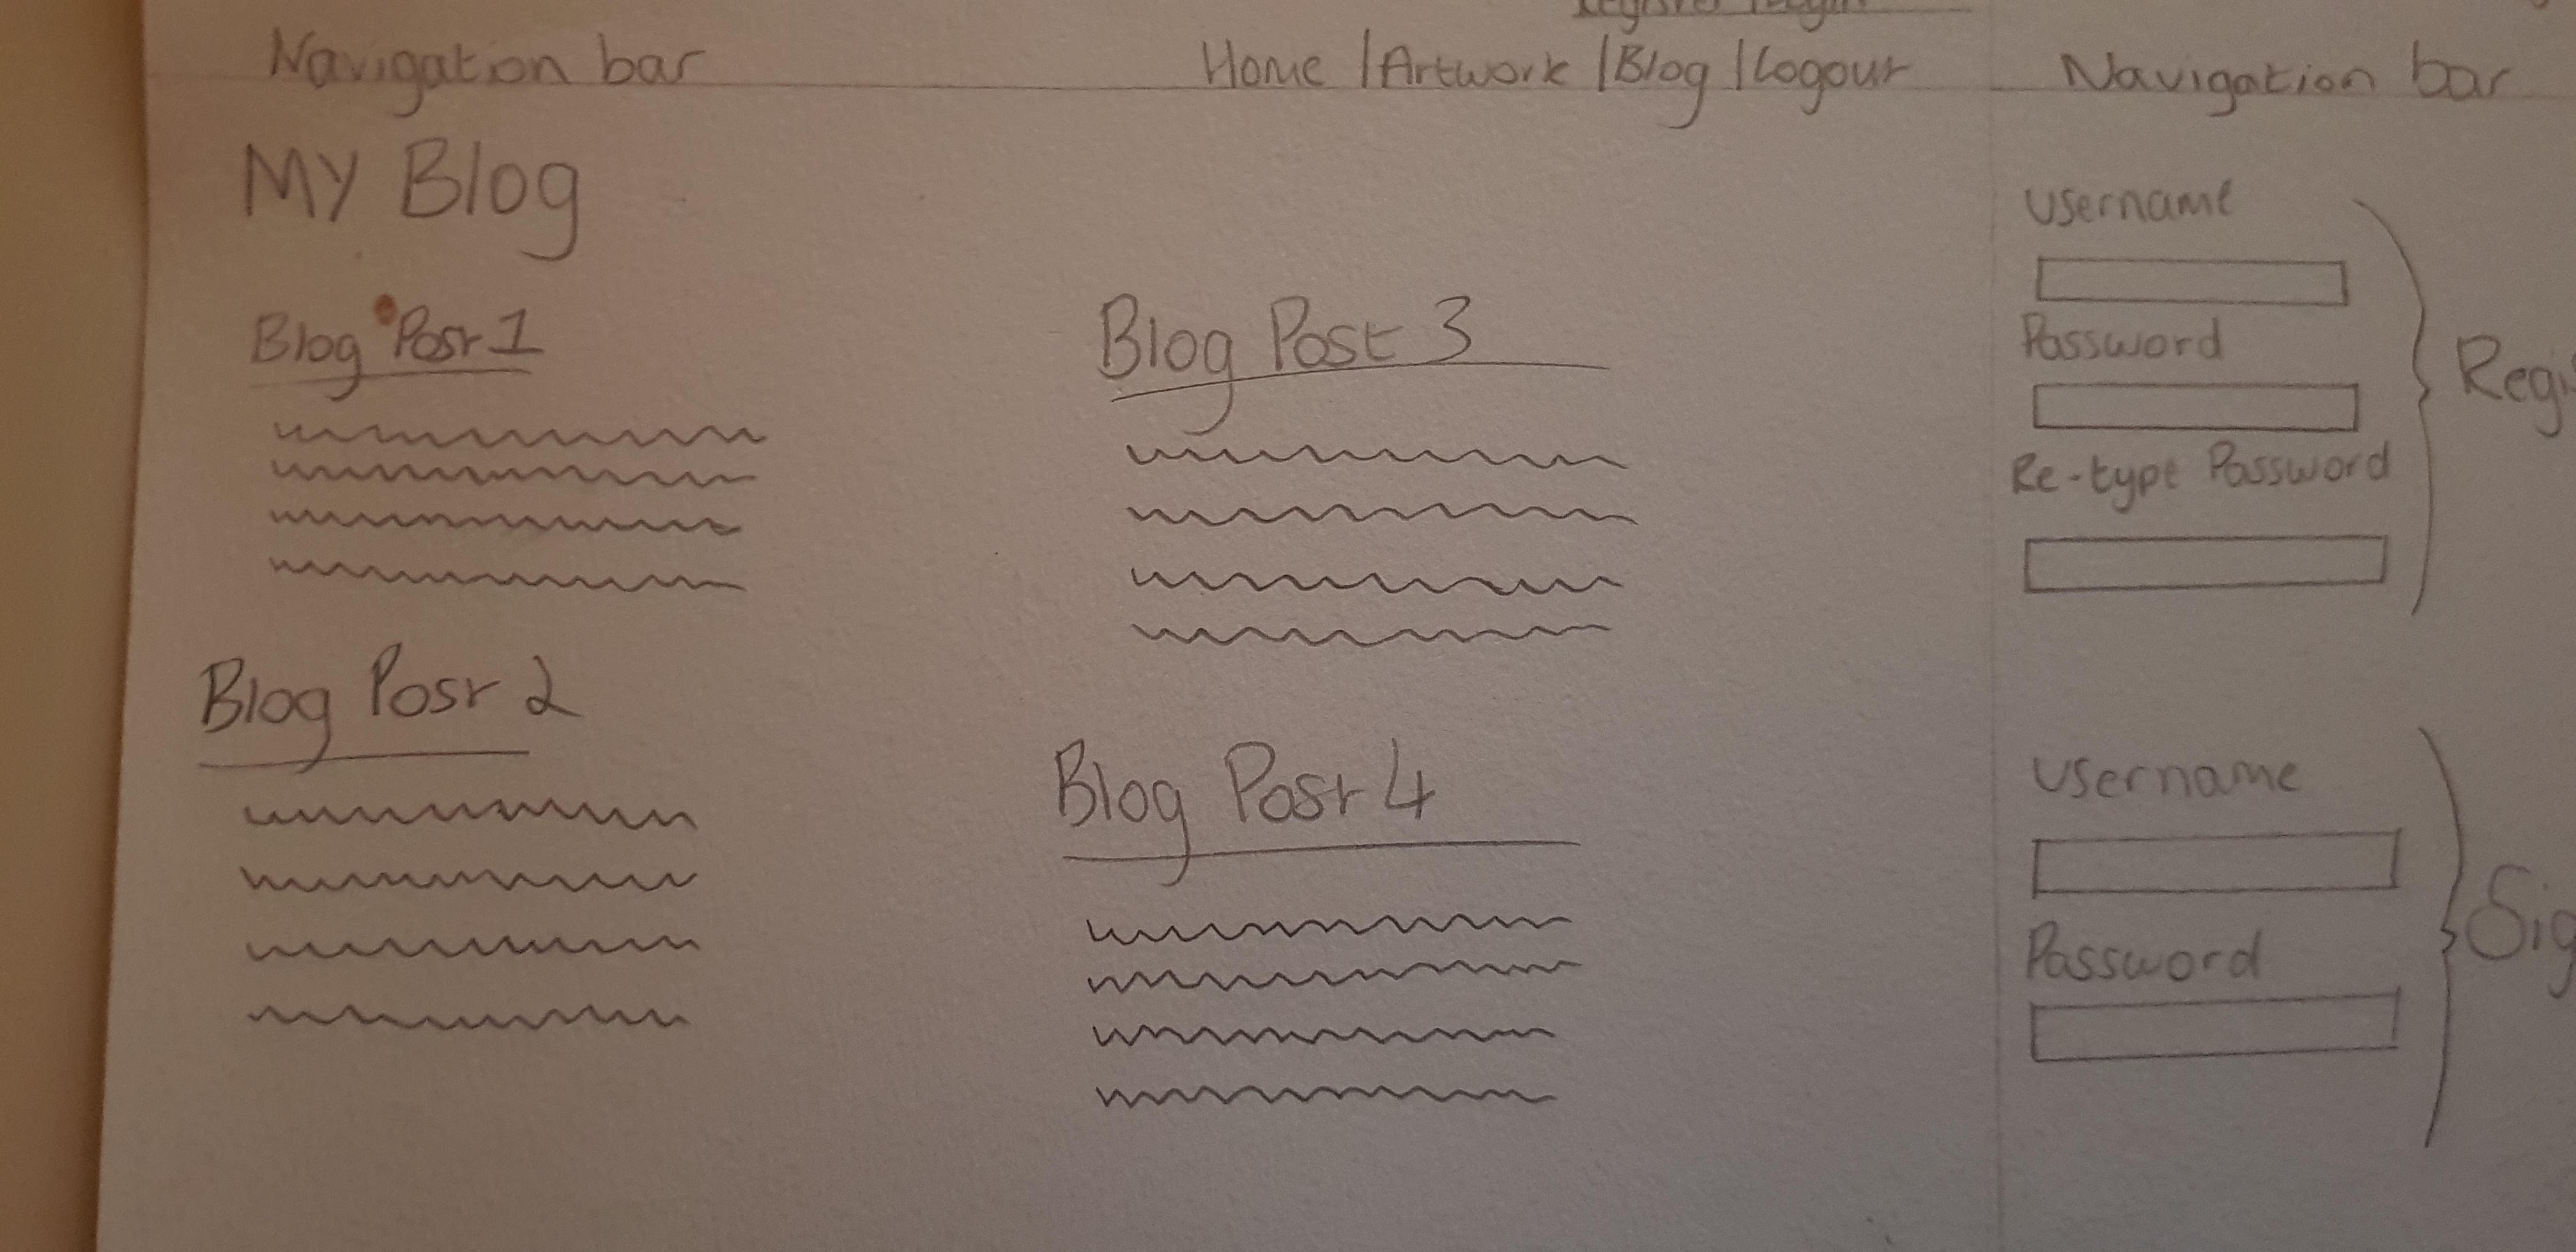 Navigation bar Home | Artwork | Blog | Logout
My Blog
Blog Post 1
Blog Post 2
Blog Post 3
Blog Post 4
Navigation bar
Username
Password
Re-type Password
Username
Password